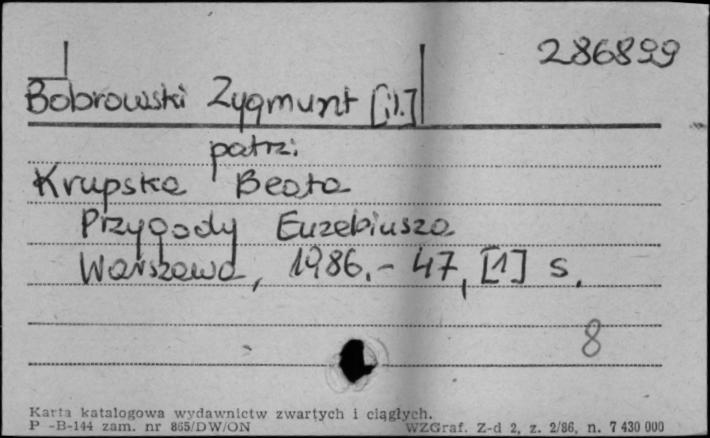 286899
Bobrowski Zygmunt [il.]
patrz:
Krupska Beata
Przygody Euzebiusza
Warszawa, 1986.- 47, [1] s.
8
Karta katalogowa wydawnictw zwartych i ciągłych.
P -B-144 zam. nr 865/DW/ON WZGraf. Z-d 2, z. 2/86, n. 7 430 000